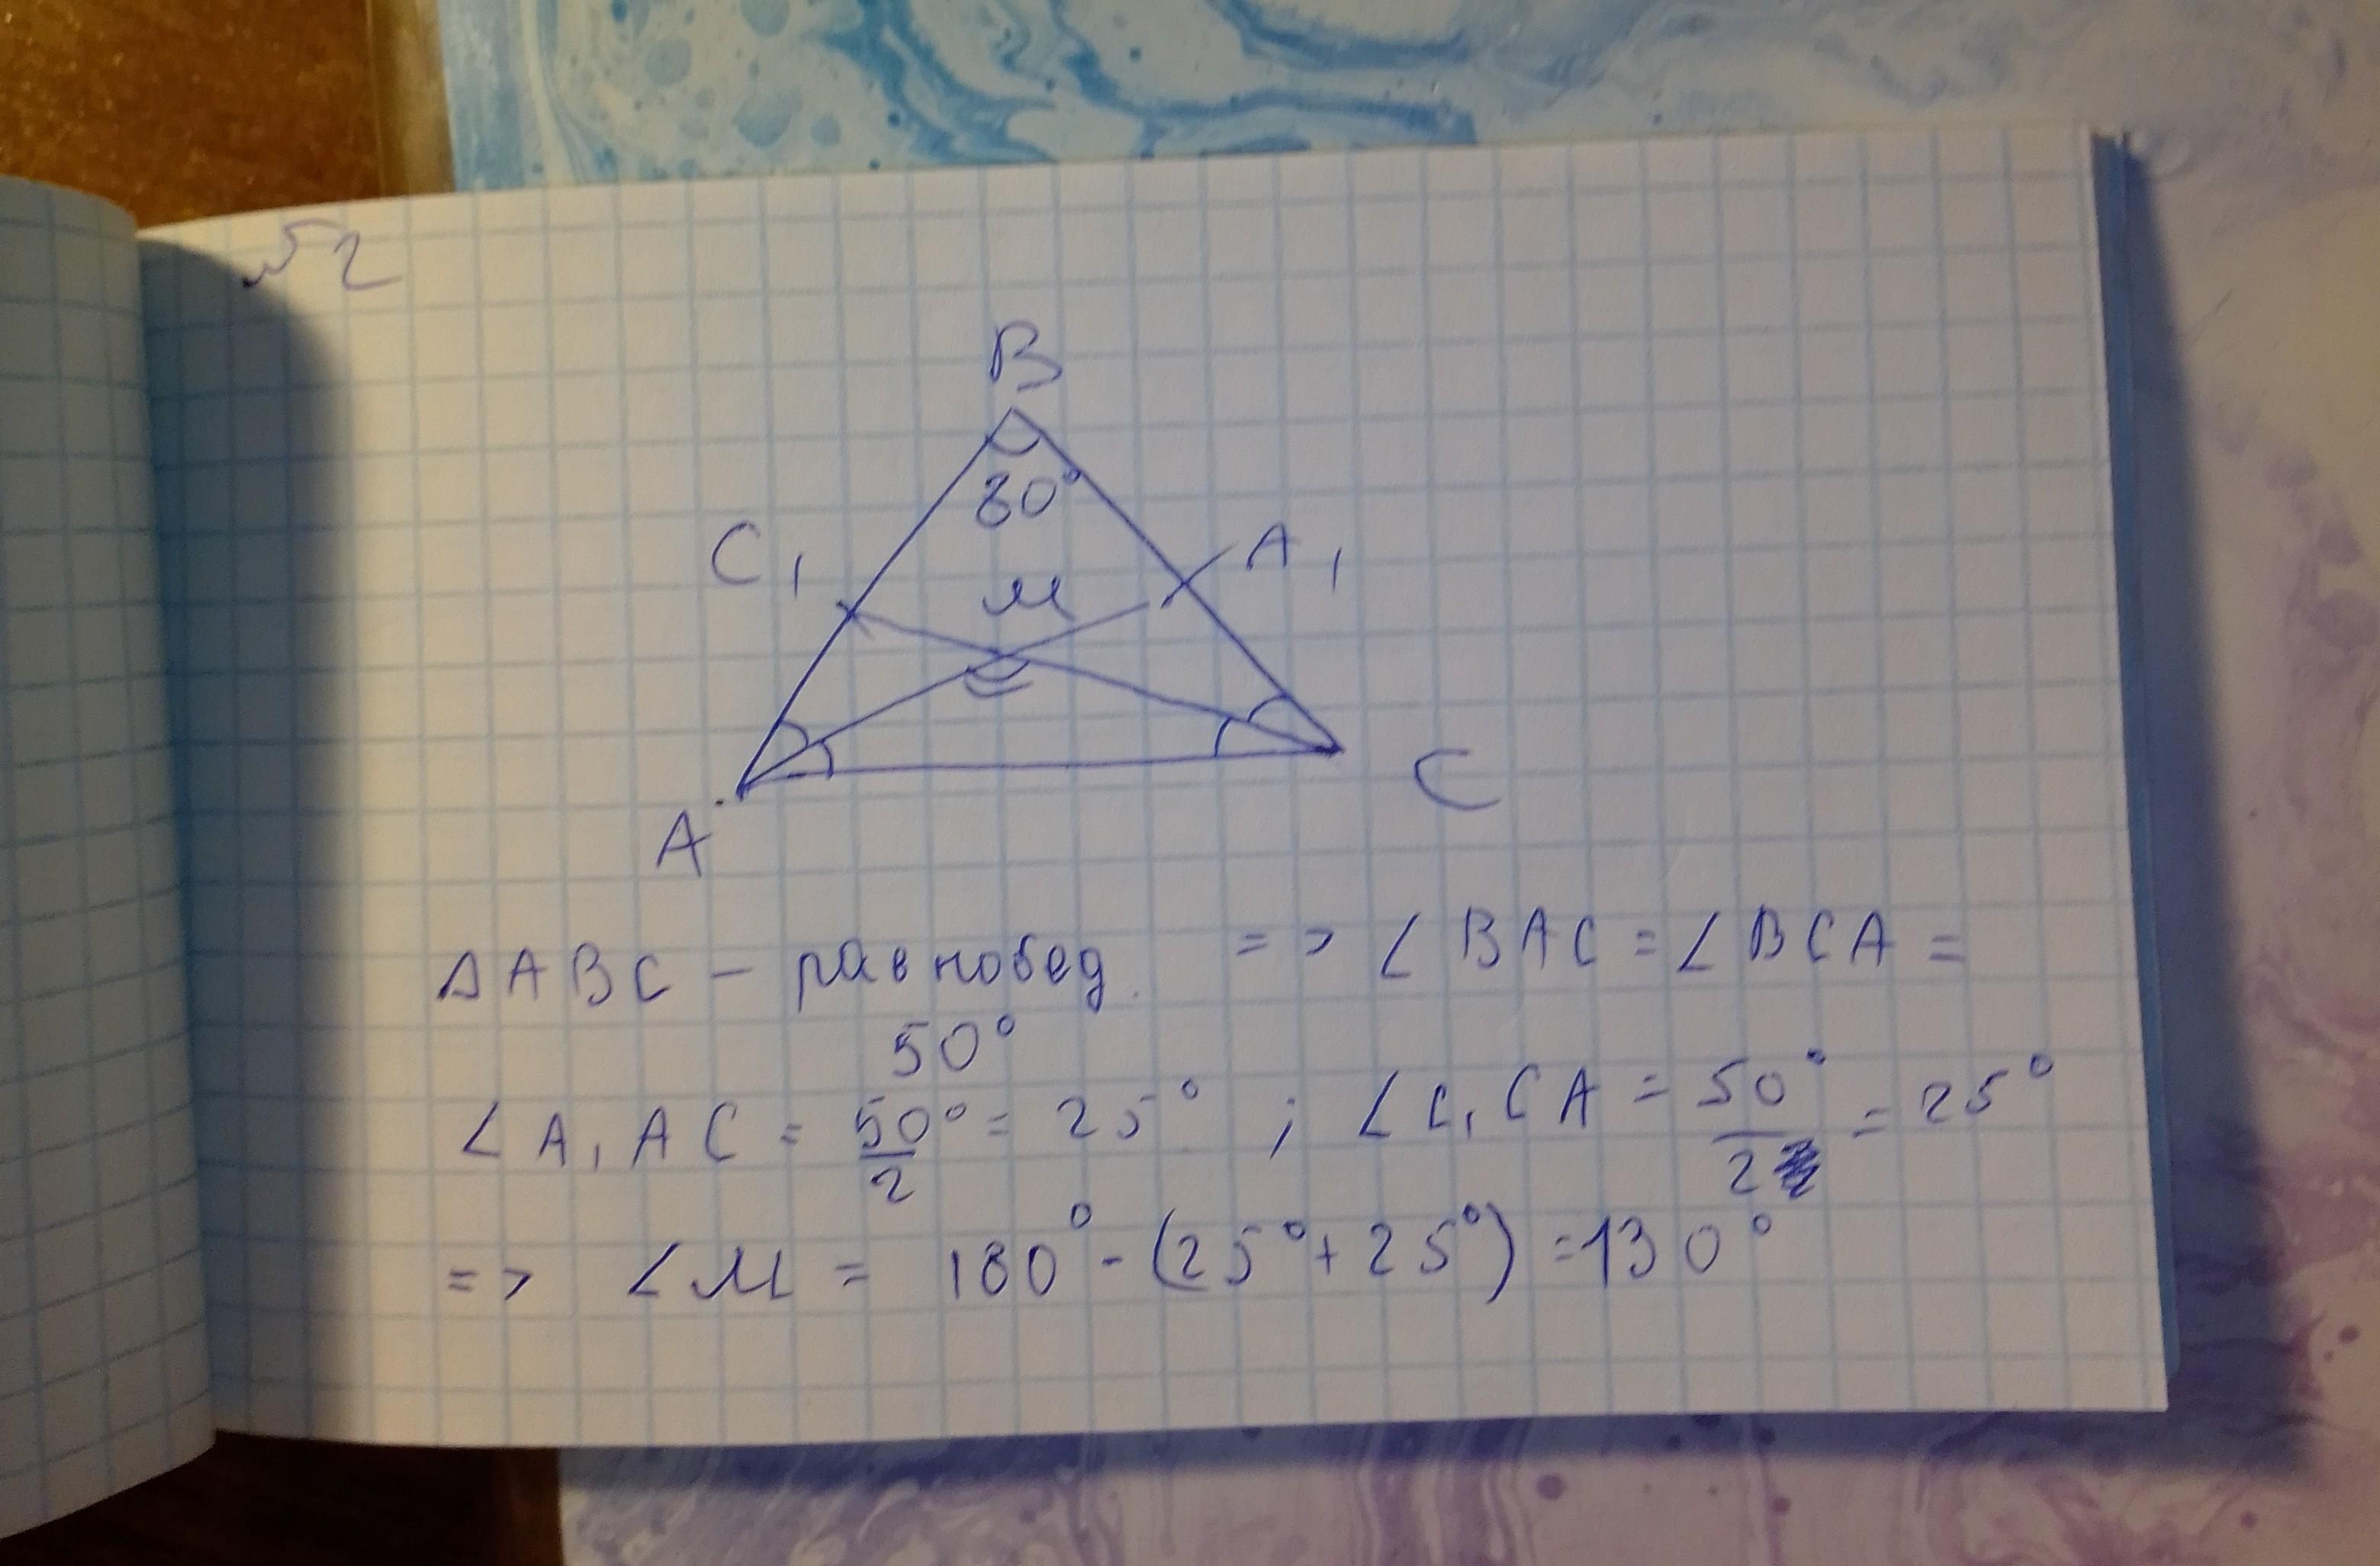 №2
B
80°
C₁
M
A₁
A
C
ΔABC – равнобед. => ∠BAC = ∠BCA =
50°
∠A₁AC = 50°/2 = 25° ; ∠C₁CA = 50°/2 = 25°
=> ∠M = 180° - (25° + 25°) = 130°